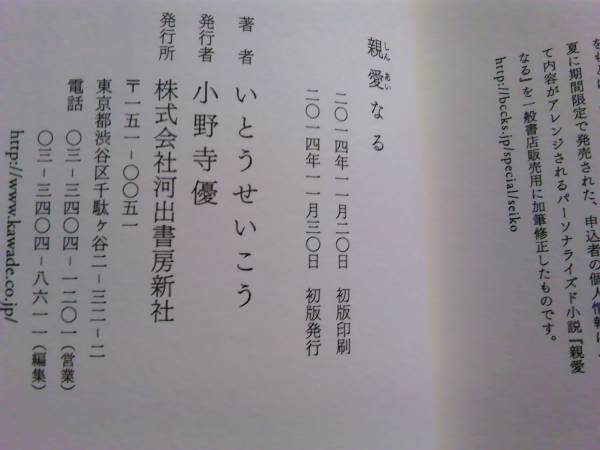 をもとに
夏に期間限定で発売された、申込者の個人情報によ
て内容がアレンジされるパーソナライズド小説『親愛
なる』を一般書店販売用に加筆修正したものです。
http://bccks.jp/special/seiko
親愛なる
しんあい
二〇一四年一一月二〇日 初版印刷
二〇一四年一一月三〇日 初版発行
著者 いとうせいこう
発行者 小野寺優
発行所 株式会社河出書房新社
〒一五一-〇〇五一
東京都渋谷区千駄ヶ谷二-三二-二
電話 〇三-三四〇四-一二〇一(営業)
〇三-三四〇四-八六一一(編集)
http://www.kawade.co.jp/